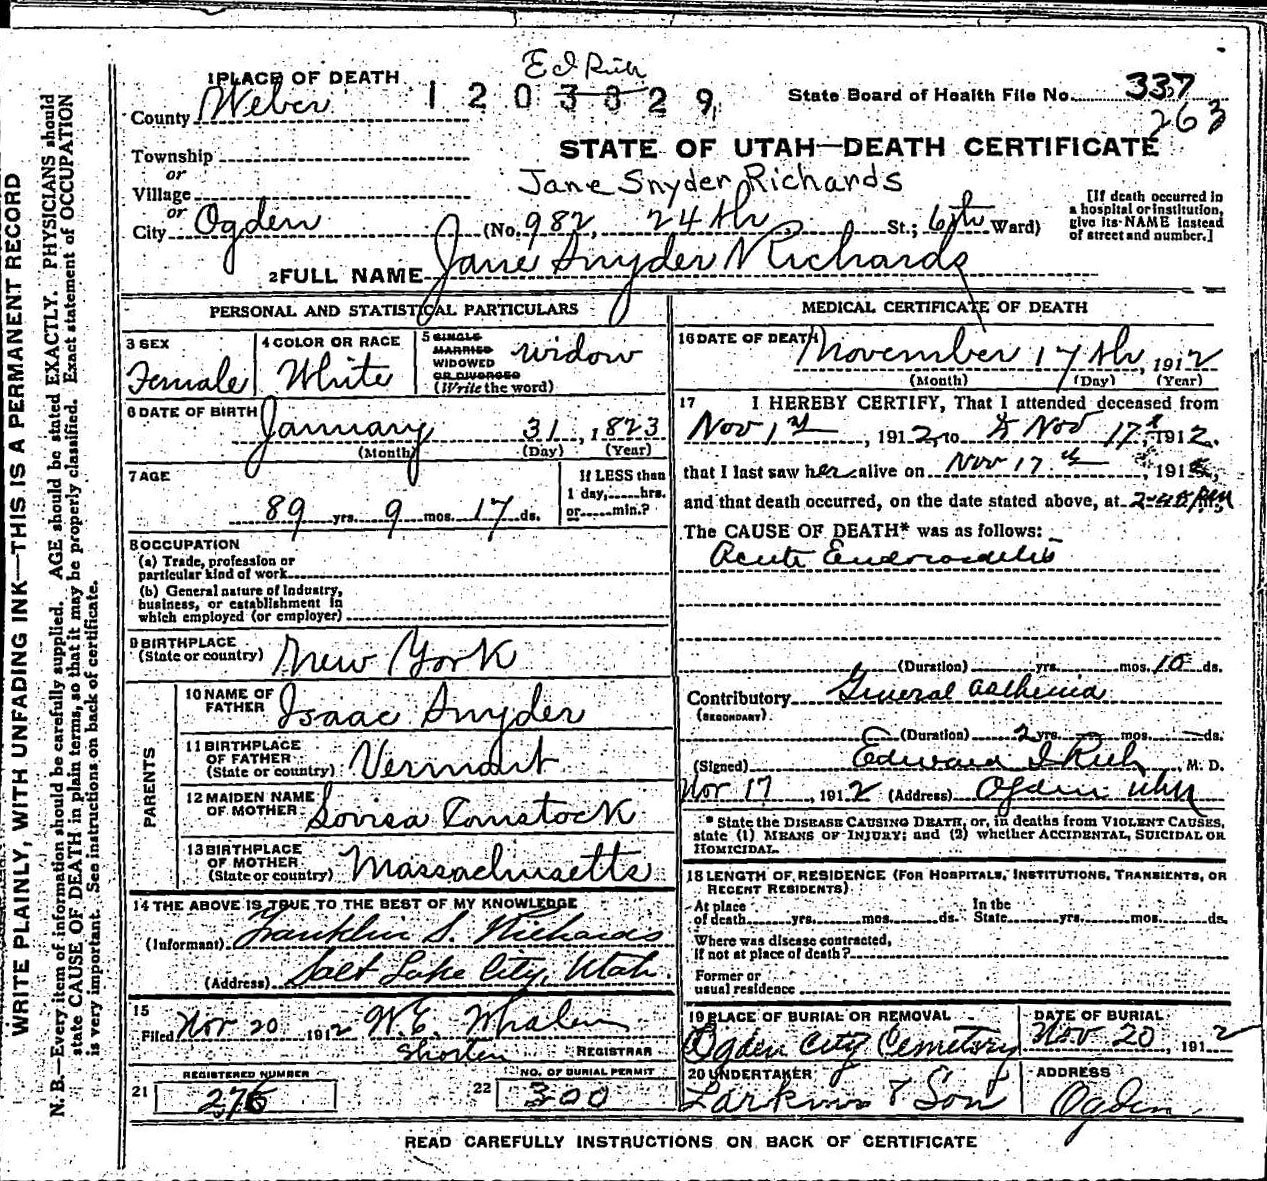 Ed Rich
1 PLACE OF DEATH
1203829
State Board of Health File No. 337
263
County Weber
STATE OF UTAH—DEATH CERTIFICATE
Township
or
Village
Jane Snyder Richards
[If death occurred in a hospital or institution, give its NAME instead of street and number.]
or
City Ogden (No. 982, 24th St.; 6th Ward)
2 FULL NAME Jane Snyder Richards
PERSONAL AND STATISTICAL PARTICULARS
3 SEX Female
4 COLOR OR RACE White
5 SINGLE MARRIED WIDOWED OR DIVORCED (Write the word) widow
6 DATE OF BIRTH January 31, 1823
(Month) (Day) (Year)
7 AGE 89 yrs. 9 mos. 17 ds.
If LESS than 1 day, hrs. or min.?
8 OCCUPATION
(a) Trade, profession or particular kind of work
(b) General nature of Industry, business, or establishment in which employed (or employer)
9 BIRTHPLACE (State or country) New York
PARENTS
10 NAME OF FATHER Isaac Snyder
11 BIRTHPLACE OF FATHER (State or country) Vermont
12 MAIDEN NAME OF MOTHER Lovisa Comstock
13 BIRTHPLACE OF MOTHER (State or country) Massachusetts
14 THE ABOVE IS TRUE TO THE BEST OF MY KNOWLEDGE
(Informant) Franklin S. Richards
(Address) Salt Lake City, Utah.
15 Filed Nov 20 1912 W.E. Whalen
REGISTRAR
REGISTERED NUMBER
21 276
NO. OF BURIAL PERMIT
22 300
MEDICAL CERTIFICATE OF DEATH
16 DATE OF DEATH November 17th, 1912
(Month) (Day) (Year)
17 I HEREBY CERTIFY, That I attended deceased from
Nov 1st, 1912, to Nov 17, 1912.
that I last saw her alive on Nov 17th, 1912,
and that death occurred, on the date stated above, at 2-45 PM
The CAUSE OF DEATH* was as follows:
Acute Endocarditis
(Duration) yrs. mos. 10 ds.
Contributory General asthenia
(SECONDARY)
(Duration) 2 yrs. mos. ds.
(Signed) Edward I Rich M. D.
Nov 17, 1912 (Address) Ogden Utah
* State the DISEASE CAUSING DEATH, or, in deaths from VIOLENT CAUSES, state (1) MEANS OF INJURY; and (2) whether ACCIDENTAL, SUICIDAL OR HOMICIDAL.
18 LENGTH OF RESIDENCE (FOR HOSPITALS, INSTITUTIONS, TRANSIENTS, OR RECENT RESIDENTS)
At place of death yrs. mos. ds. In the State yrs. mos. ds.
Where was disease contracted, If not at place of death?
Former or usual residence
19 PLACE OF BURIAL OR REMOVAL Ogden City Cemetery
DATE OF BURIAL Nov 20, 1912
20 UNDERTAKER Larkins & Son
ADDRESS Ogden
READ CAREFULLY INSTRUCTIONS ON BACK OF CERTIFICATE
WRITE PLAINLY, WITH UNFADING INK—THIS IS A PERMANENT RECORD
N. B.—Every item of information should be carefully supplied. AGE should be stated EXACTLY. PHYSICIANS should
state CAUSE OF DEATH in plain terms, so that it may be properly classified. Exact statement of OCCUPATION
is very important. See instructions on back of certificate.